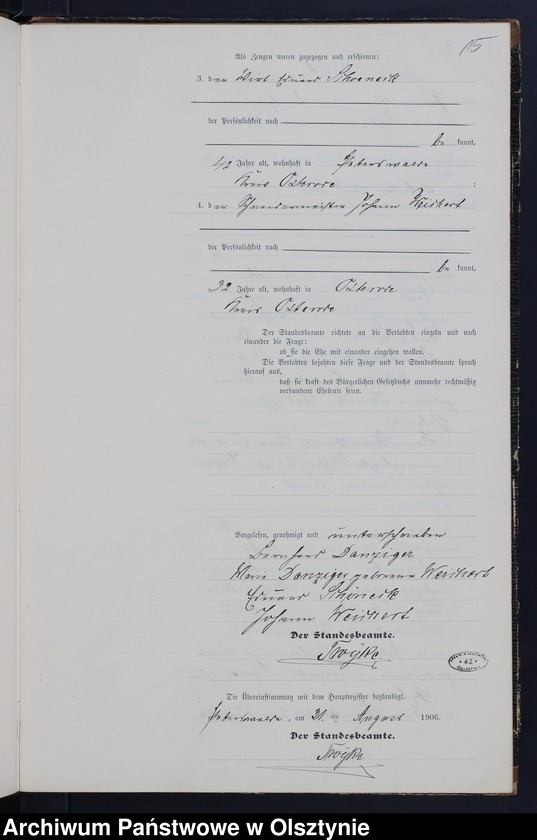 15
Als Zeugen waren zugezogen und erschienen:
3. der Wirt Eduard Schöneick
der Persönlichkeit nach
be kannt,
42 Jahre alt, wohnhaft in Peterswalde
Kreis Osterode ;
4. der Schneidermeister Johann Weichert
der Persönlichkeit nach
be kannt,
32 Jahre alt, wohnhaft in Osterode
Kreis Osterode
Der Standesbeamte richtete an die Verlobten einzeln und nach
einander die Frage:
ob sie die Ehe mit einander eingehen wollen.
Die Verlobten bejahten diese Frage und der Standesbeamte sprach
hierauf aus,
daß sie kraft des Bürgerlichen Gesetzbuchs nunmehr rechtmäßig
verbundene Eheleute seien.
Vorgelesen, genehmigt und unterschrieben
Bernhard Danziger
Marie Danziger geborene Weichert
Eduard Schöneick
Johann Weichert
Der Standesbeamte.
Troyke
42
Die Übereinstimmung mit dem Hauptregister beglaubigt.
Peterswalde, am 21 ten August 1906.
Der Standesbeamte.
Troyke
Archiwum Państwowe w Olsztynie